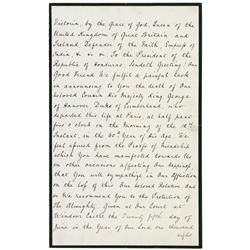 Victoria, by the Grace of God, Queen of the
United Kingdom of Great Britain and
Ireland, Defender of the Faith, Empress of
India &c &c &c To the President of the
Republic of Honduras Sendeth Greeting! Our
Good Friend! We fulfil a painful task
in announcing to You the death of Our
beloved Cousin His Majesty King George
of Hanover, Duke of Cumberland, who
departed this life at Paris, at half past
five o'clock on the morning of the 12th
Instant, in the 60th Year of His Age. We
feel assured from the Proofs of Friendship
which You have manifested towards Us
on other occasions affecting Our happiness
that You will sympathize in Our Affliction
on the loss of this Our beloved Relation and
so We recommend You to the Protection of
The Almighty. Given at Our Court at
Windsor Castle the Twenty fifth day of
June in the Year of Our Lord One thousand
eight